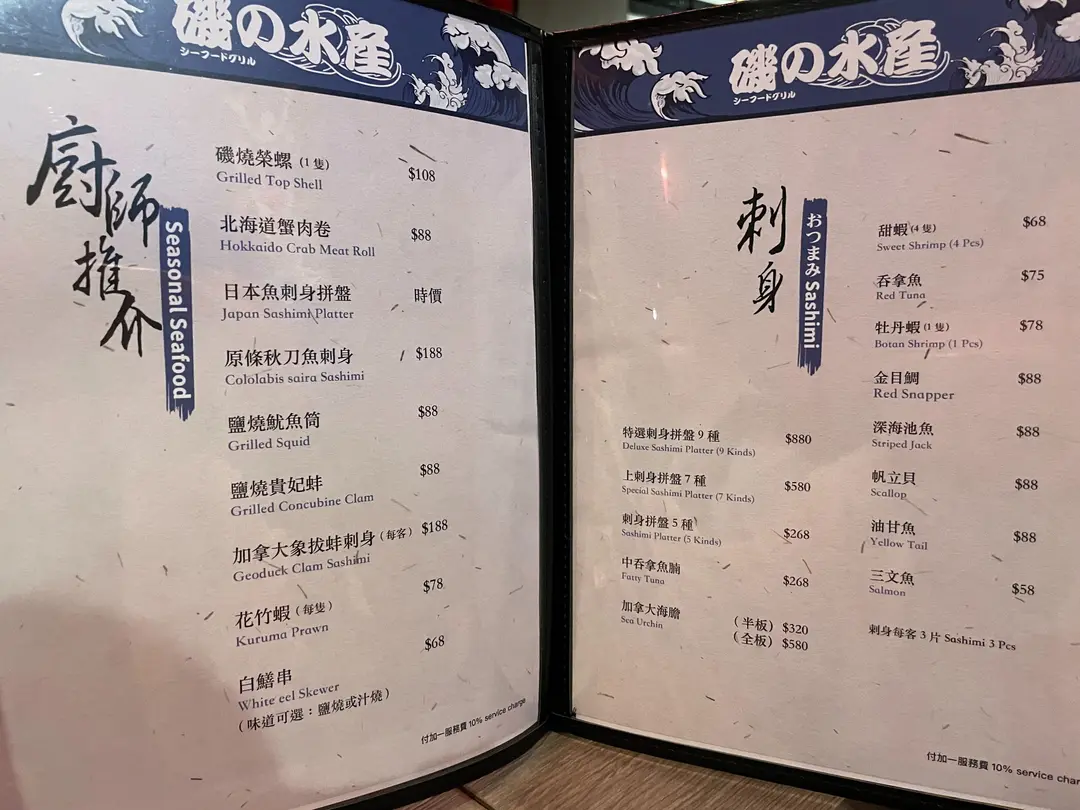 磯の水産
シーフードグリル
廚師推介
Seasonal Seafood
磯燒榮螺 (1 隻) $108
Grilled Top Shell
北海道蟹肉卷 $88
Hokkaido Crab Meat Roll
日本魚刺身拼盤 時價
Japan Sashimi Platter
原條秋刀魚刺身 $188
Cololabis saira Sashimi
鹽燒魷魚筒 $88
Grilled Squid
鹽燒貴妃蚌 $88
Grilled Concubine Clam
加拿大象拔蚌刺身 (每客) $188
Geoduck Clam Sashimi
花竹蝦 (每隻) $78
Kuruma Prawn
白鱔串 $68
White eel Skewer
(味道可選：鹽燒或汁燒)
付加一服務費 10% service charge
磯の水産
シーフードグリル
刺身
おつまみ Sashimi
特選刺身拼盤 9 種 $880
Deluxe Sashimi Platter (9 Kinds)
上刺身拼盤 7 種 $580
Special Sashimi Platter (7 Kinds)
刺身拼盤 5 種 $268
Sashimi Platter (5 Kinds)
中吞拿魚腩 $268
Fatty Tuna
加拿大海膽 (半板) $320
Sea Urchin (全板) $580
甜蝦 (4 隻) $68
Sweet Shrimp (4 Pcs)
吞拿魚 $75
Red Tuna
牡丹蝦 (1 隻) $78
Botan Shrimp (1 Pcs)
金目鯛 $88
Red Snapper
深海池魚 $88
Striped Jack
帆立貝 $88
Scallop
油甘魚 $88
Yellow Tail
三文魚 $58
Salmon
刺身每客 3 片 Sashimi 3 Pcs
付加一服務費 10% service char